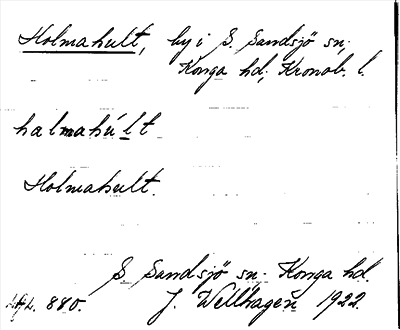 Holmahult, by i S. Sandsjö sn,
Konga hd, Kronob. l.
halmahúlt
Holmahult.
S. Sandsjö sn. Konga hd.
880. J. Wellhagen 1922.